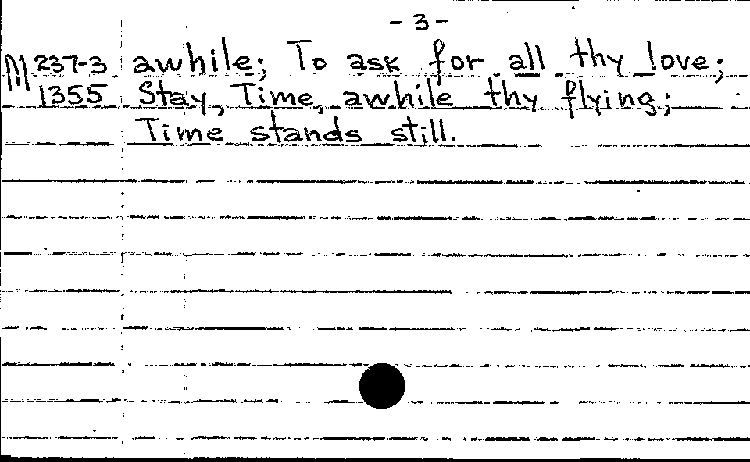 - 3 -
M 237-3 awhile; To ask for all thy love;
1355 Stay, Time, awhile thy flying;
Time stands still.